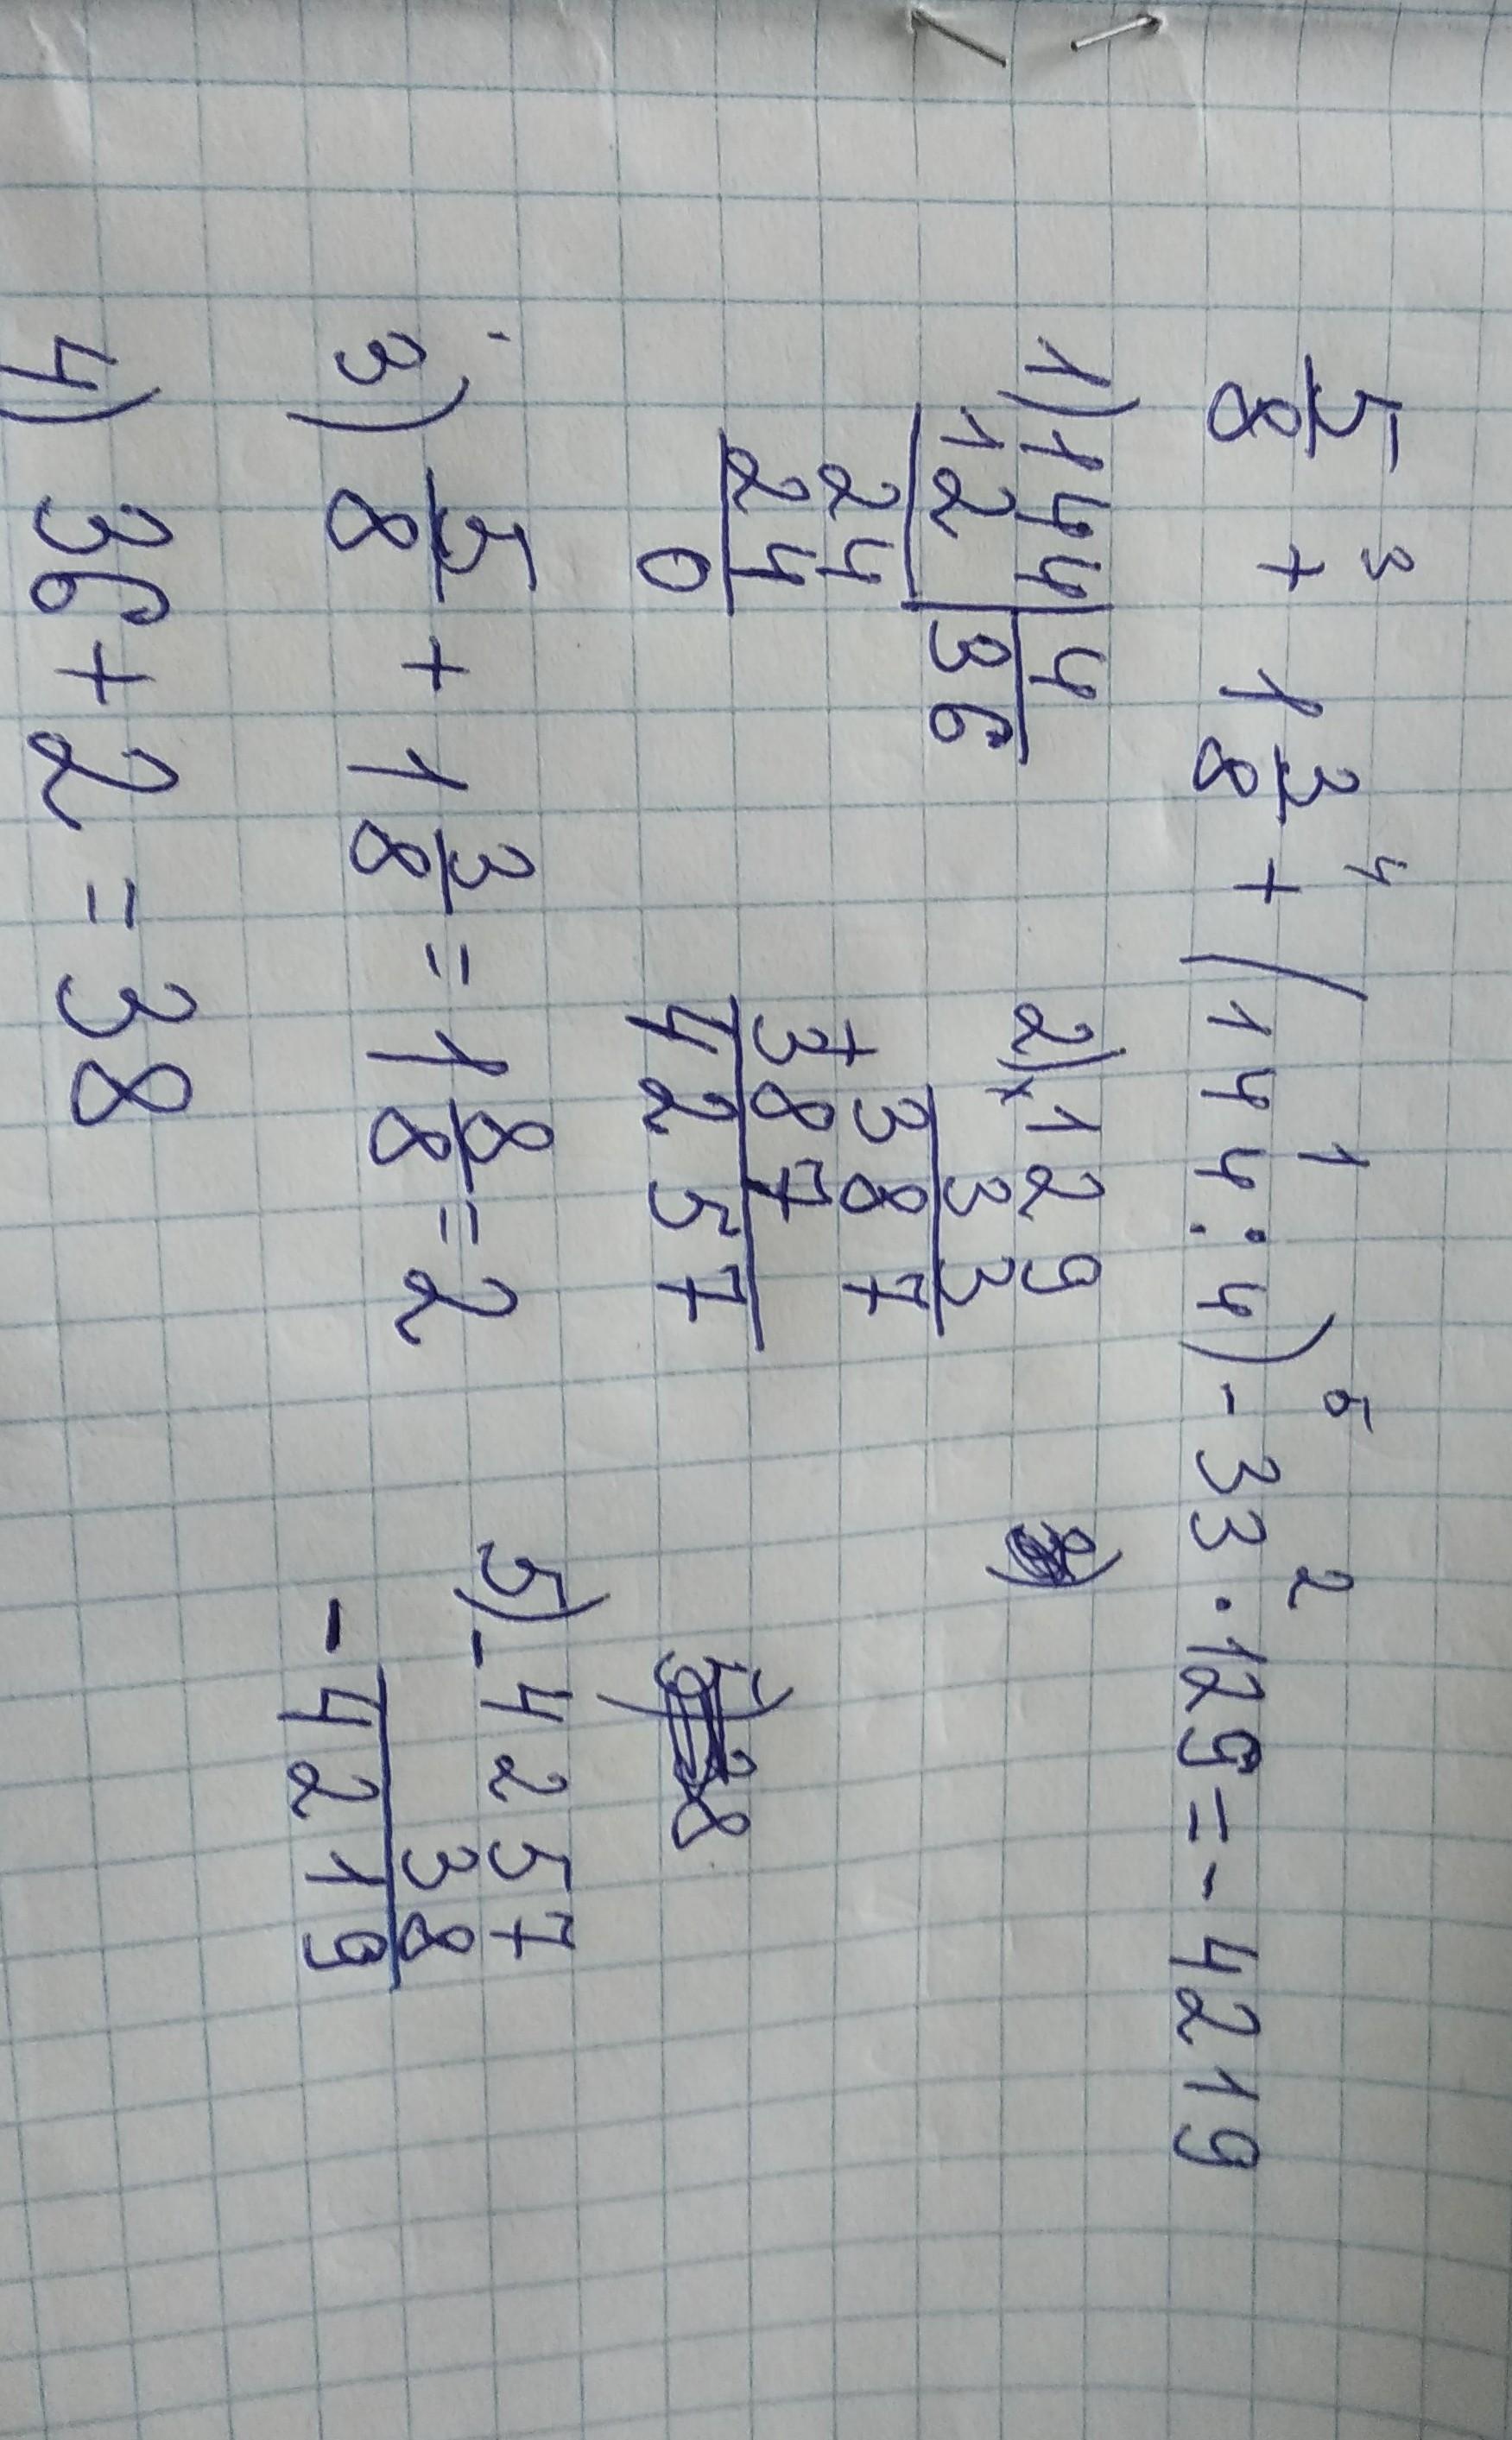 3 4 1 5 2
5/8 + 1 3/8 + (144:4) - 33·129 = -4219
1) 144 | 4
12 | 36
24
24
0
2) × 129
33
387
+ 387
4257
3) 5/8 + 1 3/8 = 1 8/8 = 2
4) 36 + 2 = 38
5) - 4257
38
- 4219